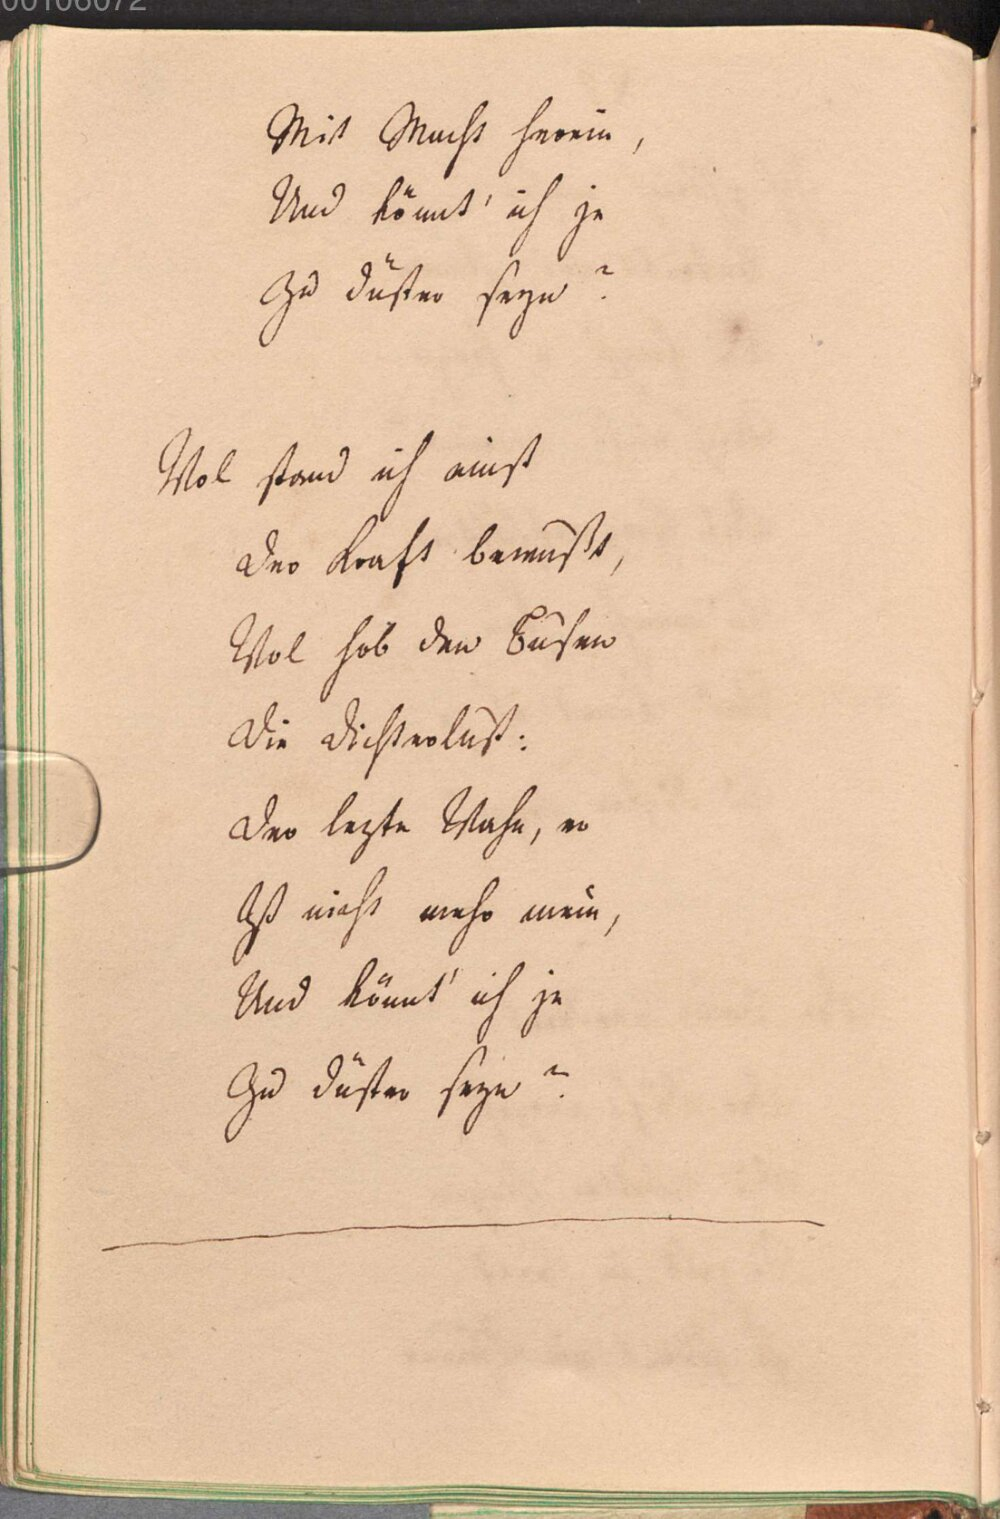 00106072
Mit Macht herein,
Und könnt' ich je
Zu düster seyn?
Wol stand ich einst
Der Kraft bewußt,
Wol hob den Busen
Die Dichterlust:
Der lezte Wahn, er
Ist nicht mehr mein,
Und könnt' ich je
Zu düster seyn?